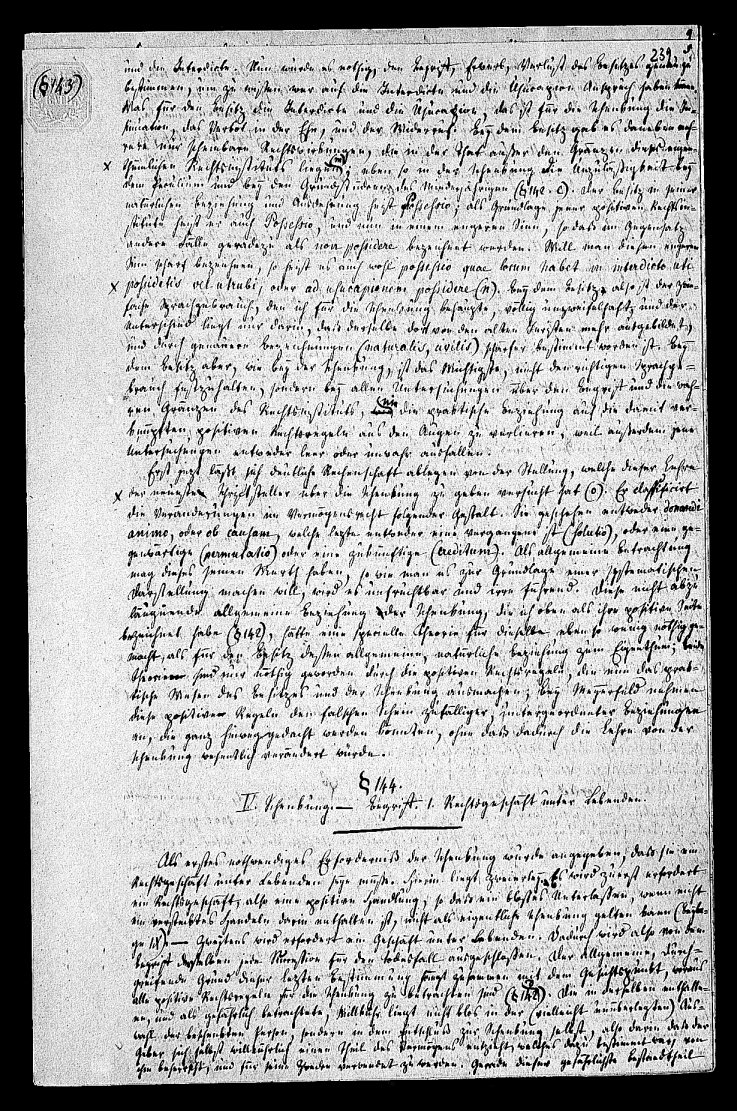 239.
(§143)
und die Interdicte. Nun würde es nöthig, den Begriff, Erwerb, Verlust des Besitzes genau zu
bestimmen, um zu wissen, wer auf die Interdicte und die Usucapion Anspruch haben kann.
Was für den Besitz die Interdicte und die Usucapion, das ist für die Schenkung die In-
sinuation, das Verbot in der Ehe, und der Widerruf. Bey dem Besitz gab es daneben auch
noch nur scheinbare Rechtswirkungen, die in der That außer den Gränzen dieses eigen-
thümlichen Rechtsinstituts liegen; eben so in der Schenkung die Unzulässigkeit bey
dem Peculium und bey den Grundstücken des Minderjährigen (§142. e). Der Besitz in seiner
natürlichen Beziehung und Ausdehnung heißt Possessio; als Grundlage jener positiven Rechtsin-
stitute heißt er auch Possessio, und nun in einem engeren Sinn, so daß im Gegensatz
andere Fälle geradezu als non possidere bezeichnet werden. Will man diesen engeren
Sinn scharf bezeichnen, so heißt es auch wohl possessio quae locum habet in interdicto uti
possidetis vel utrubi, oder ad usucapionem possidere (n). Bey dem Besitze also ist der zwie-
fache Sprachgebrauch, den ich für die Schenkung behaupte, völlig unzweifelhaft, und der
Unterschied liegt nur darin, daß derselbe dort von den alten Juristen mehr ausgebildet,
und durch genauere Bezeichnungen (naturalis, civilis) schärfer bestimmt worden ist. Bey
dem Besitz aber, wie bey der Schenkung, ist das Wichtigste, nicht den richtigen Sprachge-
brauch festzuhalten, sondern bey allen Untersuchungen über den Begriff und die wah-
ren Gränzen des Rechtsinstituts, nie die praktische Beziehung auf die damit ver-
knüpften positiven Rechtsregeln aus den Augen zu verlieren, weil außerdem jene
Untersuchungen entweder leer oder unwahr ausfallen.
Erst jetzt läßt sich deutliche Rechenschaft ablegen von der Stellung, welche dieser Lehre
der neueste Schriftsteller über die Schenkung zu geben versucht hat (o). Er classificirt
die Veränderungen im Vermögensrecht folgender Gestalt. Sie geschehen entweder donandi
animo, oder ob causam, welche letzte entweder eine vergangene ist (solutio), oder eine ge-
genwärtige (permutatio) oder eine zukünftige (creditum). Als allgemeine Betrachtung
mag dieses seinen Werth haben, so wie man es zur Grundlage einer systematischen
Darstellung machen will, wird es unfruchtbar und irre führend. Diese nicht abzu-
läugnende allgemeine Beziehung der Schenkung, die ich oben als ihre positive Seite
bezeichnet habe (§142), hätte eine specielle Theorie für dieselbe eben so wenig nöthig ge-
macht, als für den Besitz dessen allgemeine, natürliche Beziehung zum Eigenthum; beide
Theorien sind nur nöthig geworden durch die positiven Rechtsregeln, die nun das prak-
tische Wesen des Besitzes und der Schenkung ausmachen; bey Meyerfeld nehmen
diese positiven Regeln den falschen Schein zufälliger, untergeordneter Beziehungen
an, die ganz hinweg gedacht werden könnten, ohne daß dadurch die Lehre von der
Schenkung wesentlich verändert würde.
§144.
IV. Schenkung. — Begriff. 1. Rechtsgeschäft unter Lebenden.
Als erstes nothwendiges Erforderniß der Schenkung wurde angegeben, daß sie ein
Rechtsgeschäft unter Lebenden seyn müsse. Hierin liegt zweierley. Es wird zuerst erfordert
ein Rechtsgeschäft, also eine positive Handlung, so daß ein bloßes Unterlassen, wenn nicht
ein verstecktes Handeln darin enthalten ist, nicht als eigentliche Schenkung gelten kann (Beyla-
ge IX). — Zweytens wird erfordert ein Geschäft unter Lebenden. Dadurch wird also von dem
Begriff derselben jede Succession für den Todesfall ausgeschlossen. Der allgemeine, durch-
greifende Grund dieser letzten Bestimmung hängt zusammen mit dem Gesichtspunkt, woraus
alle positive Rechtsregeln für die Schenkung zu betrachten sind (§142). Die in derselben enthalte-
ne, und als gefährlich betrachtete, Willkühr liegt nicht blos in der (vielleicht unüberlegten) Aus-
wahl der beschenkten Person, sondern in dem Entschluß zur Schenkung selbst, also darin daß der
Geber sich selbst willkührlich einen Theil des Vermögens entzieht, welches dazu bestimmt war, von
ihm beherrscht, und für seine Zwecke verwendet zu werden. Gerade dieser gefährlichste Bestandtheil